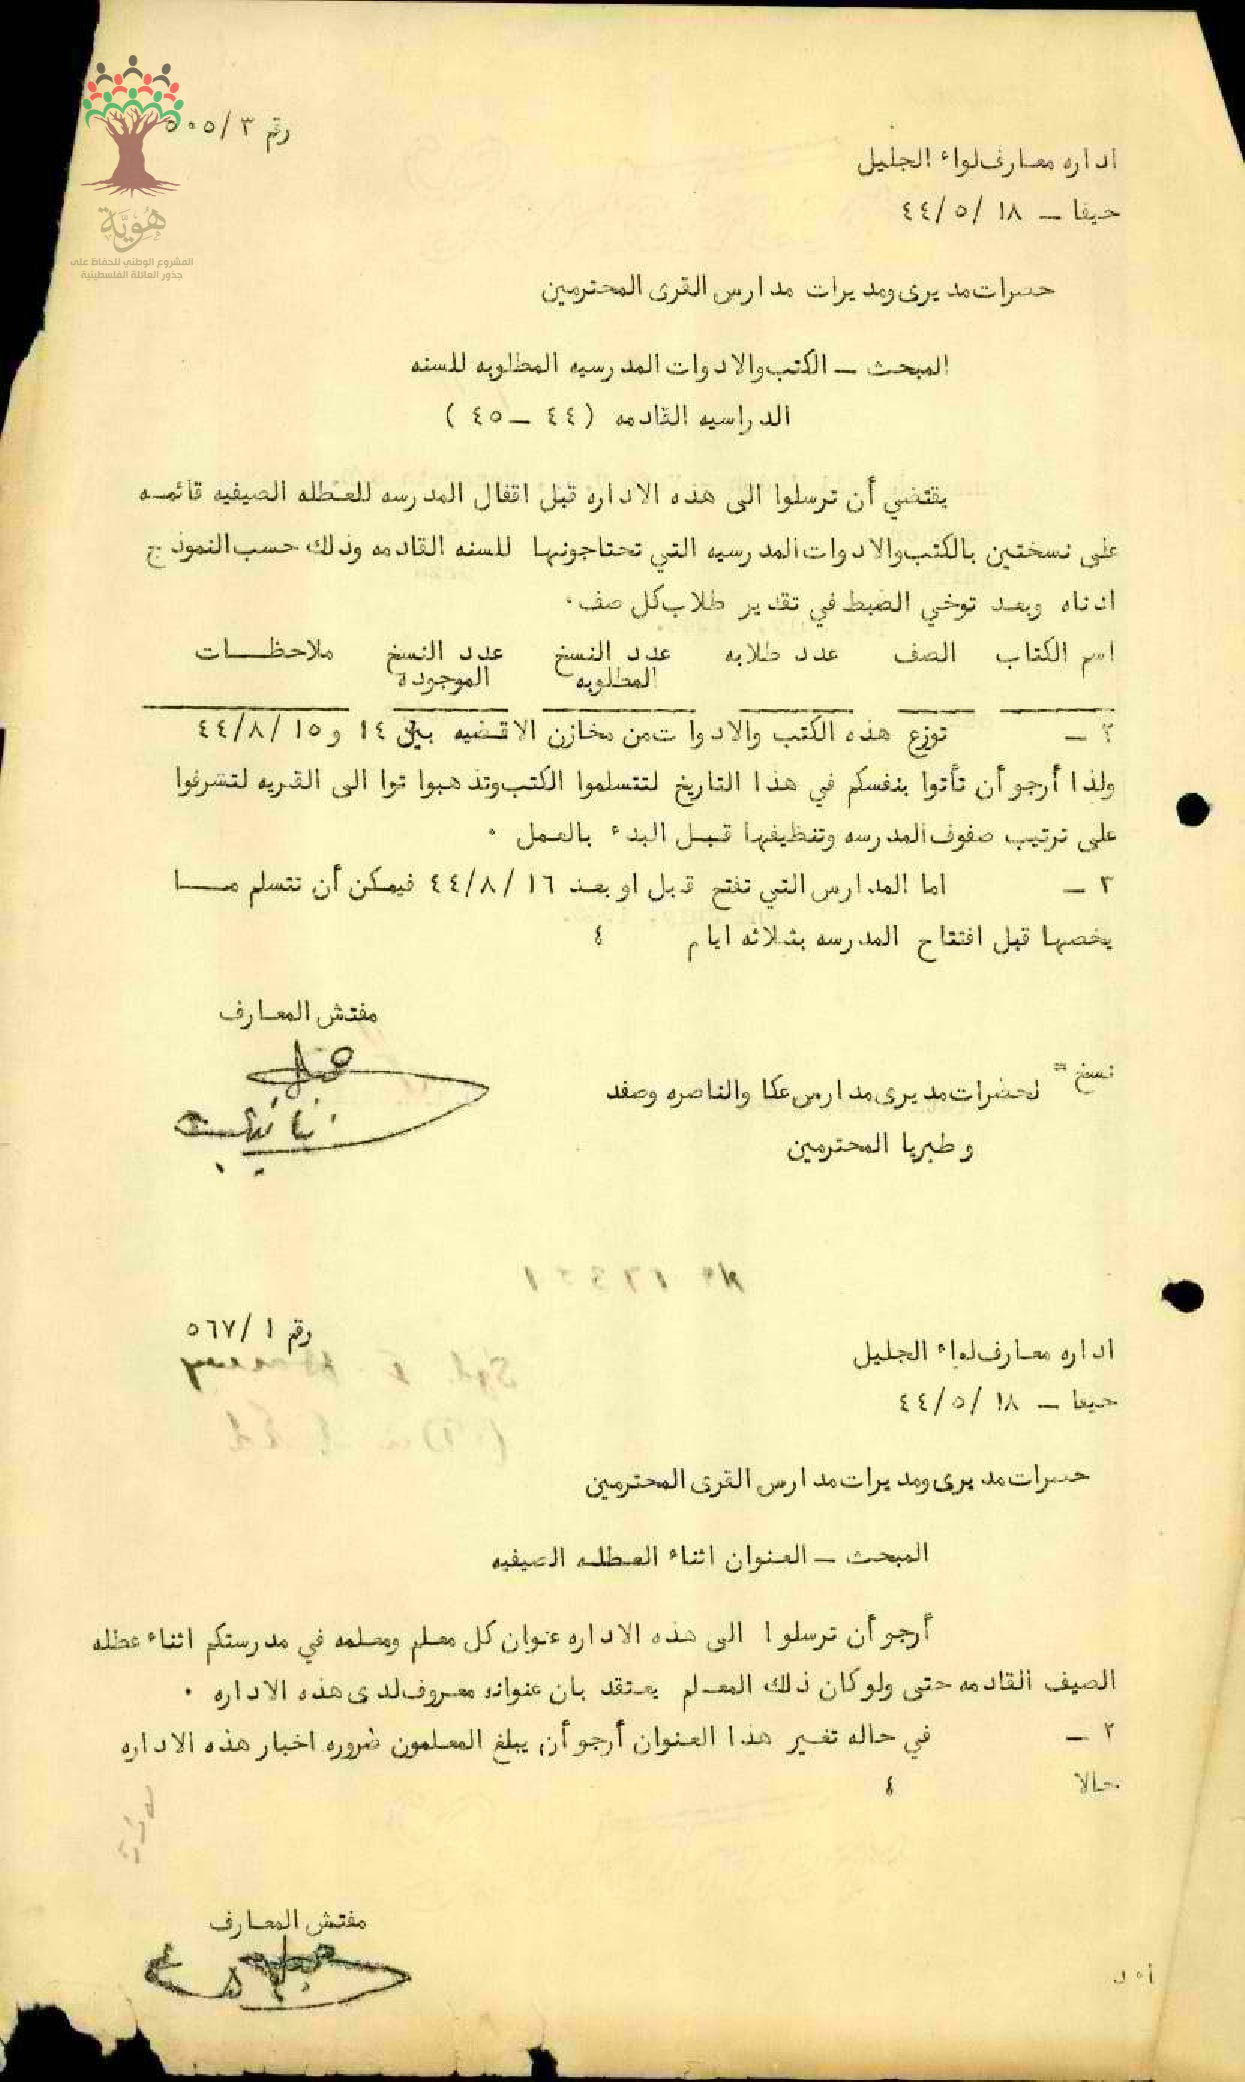 هُوِيَّة
المشروع الوطني للحفاظ على
جذور العائلة الفلسطينية
رقم ٣/ ٥٠٥
اداره معارف لواء الجليل
حيفا – ١٨ /٥/ ٤٤
حضرات مديرى ومديرات مدارس القرى المحترمين
المبحث – الكتب والادوات المدرسيه المطلوبه للسنه
الدراسيه القادمه (٤٤ – ٤٥ )
يقتضي أن ترسلوا الى هذه الاداره قبل اقفال المدرسه للعطله الصيفيه قائمه
على نسختين بالكتب والادوات المدرسيه التي تحتاجونها للسنه القادمه وذلك حسب النموذج
ادناه وبعد توخي الضبط في تقدير طلاب كل صف .
اسم الكتاب الصف عدد طلابه عدد النسخ المطلوبه عدد النسخ الموجوده ملاحظات
٢ – توزع هذه الكتب والادوات من مخازن الاقضيه بين ١٤ و ١٥ /٨/ ٤٤
ولذا أرجو أن تأتوا بنفسكم في هذا التاريخ لتتسلموا الكتب وتذهبوا توا الى القريه لتشرفوا
على ترتيب صفوف المدرسه وتنظيفها قبل البدء بالعمل .
٣ – اما المدارس التي تفتح قبل او بعد ١٦ /٨/ ٤٤ فيمكن أن تتسلم ما
يخصها قبل افتتاح المدرسه بثلاثه ايام ٤
مفتش المعارف
نسخ = لحضرات مديرى مدارس عكا والناصره وصفد
وطبريا المحترمين
رقم ١ /٥٦٧
اداره معارف لواء الجليل
حيفا – ١٨ /٥/ ٤٤
حضرات مديرى ومديرات مدارس القرى المحترمين
المبحث – العنوان اثناء العطله الصيفيه
أرجو أن ترسلوا الى هذه الاداره عنوان كل معلم ومعلمه في مدرستكم اثناء عطله
الصيف القادمه حتى ولو كان ذلك المعلم يعتقد بان عنوانه معروف لدى هذه الاداره .
٢ – في حاله تغيير هذا العنوان أرجو أن يبلغ المعلمون ضروره اخبار هذه الاداره
حالا ٤
مفتش المعارف